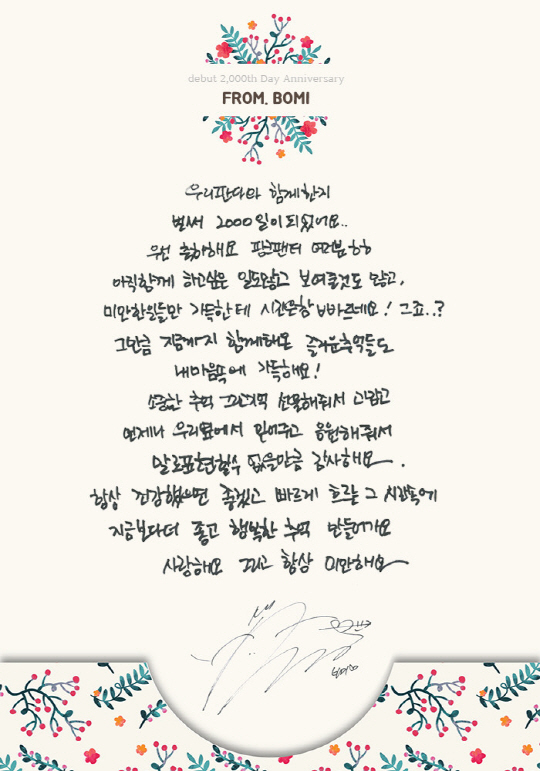 debut 2,000th Day Anniversary
FROM. BOMI
우리판다와 함께한지
벌써 2000일이되었어요..
우선 축하해요 팡팡팬더 여러분ㅎㅎ
아직함께 하고싶은 일도많고 보여줄것도 많고,
미안한일들만 가득한데 시간은참 빠르네요! 그죠..?
그만큼 지금까지 함께해온 즐거운추억들도
내마음속에 가득해요!
소중한 추억 그리고 선물해줘서 고맙고
언제나 우리옆에서 믿어주고 응원해줘서
말로표현할수 없을만큼 감사해요.
항상 건강했으면 좋겠고 빠르게 흐를 그 시간속에
지금보다더 좋고 행복한 추억 만들어가요
사랑해요 그리고 항상 미안해요